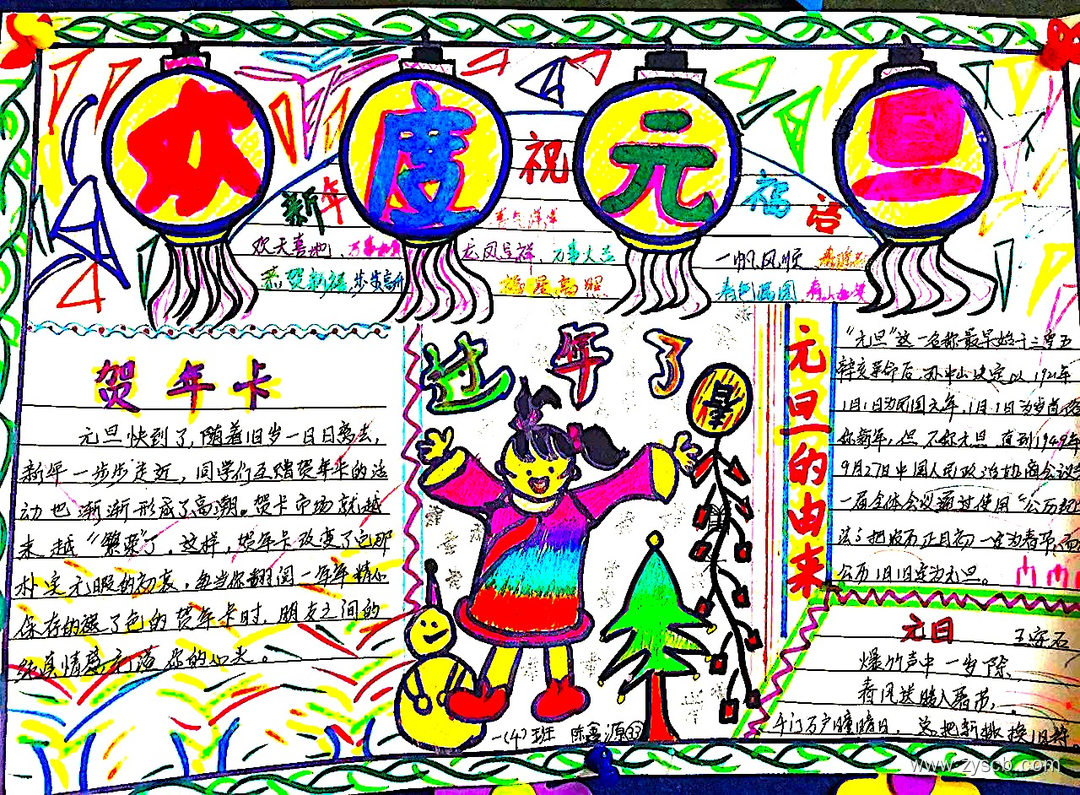 欢度元旦
新年祝福语
欢天喜地 龙凤呈祥 万事大吉 一帆风顺
恭贺新禧 步步高升 福星高照
过年了
贺年卡
元旦快到了,随着旧岁一日日离去,
新年一步步走近,同学们互赠贺年卡的活
动也渐渐形成了高潮。贺卡市场就越
来越“繁荣”了,这样,贺年卡改变了它那
朴实无暇的初衷,每当你翻阅一年年精心
保存的褪了色的贺年卡时,朋友之间的
纯真情感充溢你的心头。
元旦的由来
“元旦”这一名称最早始于三皇五
辛亥革命后,孙中山决定以1912年
1月1日为民国元年,1月1日为岁首
你新年,但不你元旦 直到1949年
9月27日中国人民政治协商会议
一届全体会议通过使用“公历纪
法”把农历正月初一定为春节,而
公历1月1日定为元旦。
元日 王安石
爆竹声中一岁除
春风送暖入
千门万户瞳瞳日,总把新桃换旧符。
一(4)班 陈 源33
www.zyscb.com